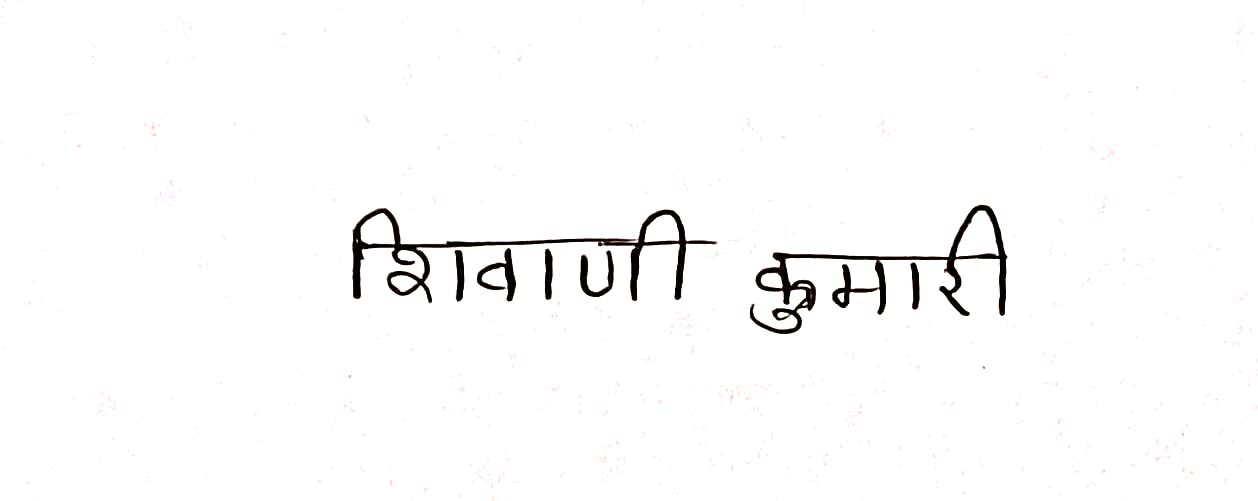 शिवाणी कुमारी